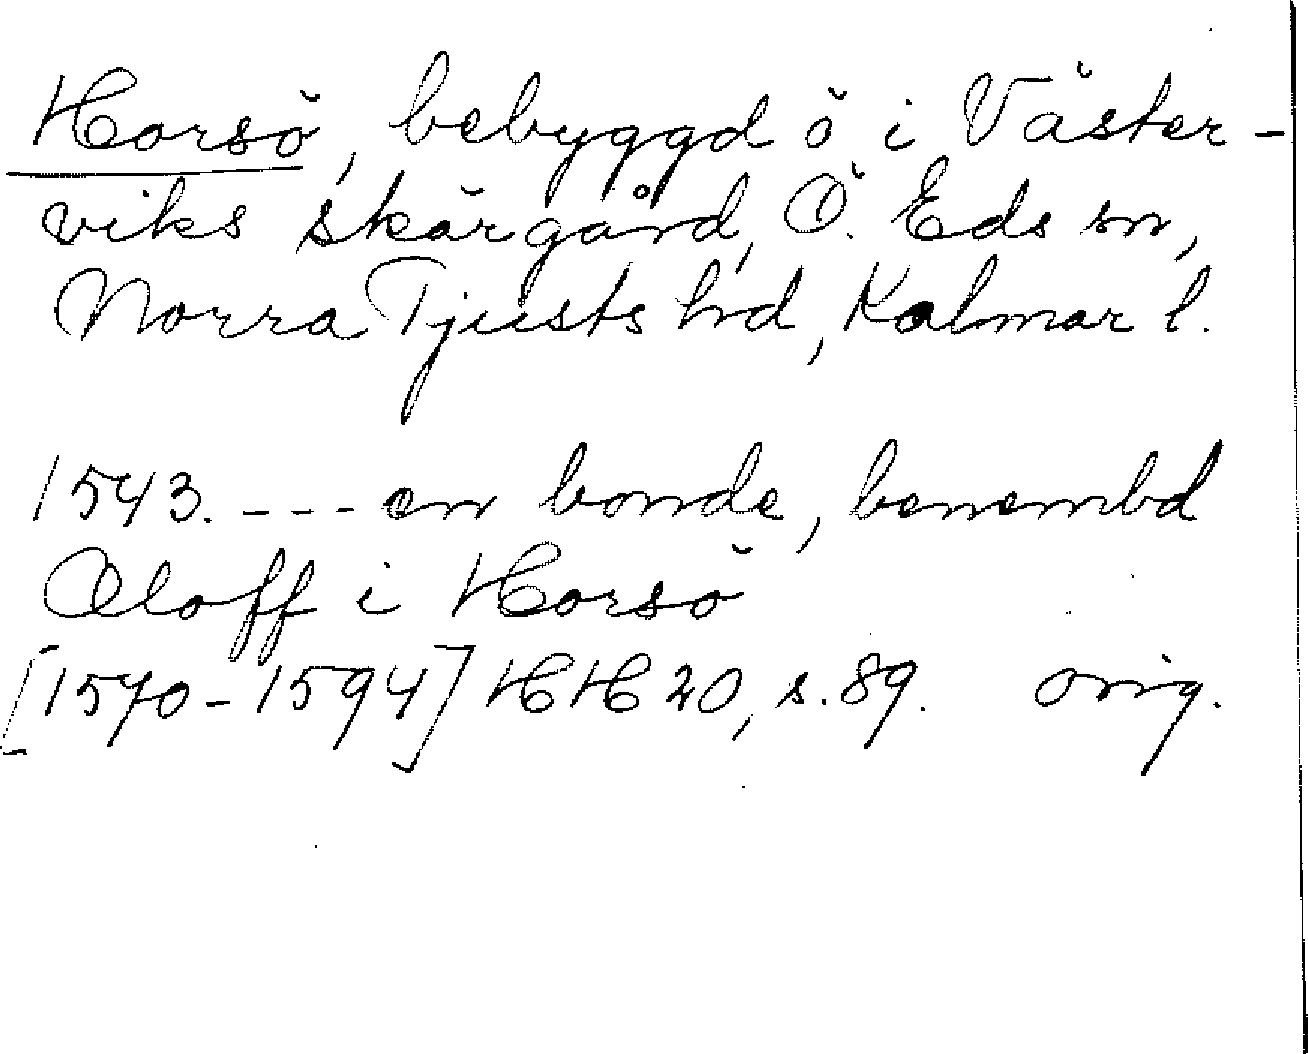 Horsö, bebyggd ö i Väster-
viks skärgård, Ö. Eds sn,
Norra Tjusts hd, Kalmar l.
1543. --- en bonde, benembd
Oloff i Horsö
[1570-1594] HH 20, s. 89. orig.